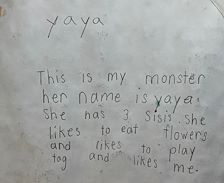 yaya
This is my monster
her name is yaya.
She has 3 Sisis. She
likes to eat flowers
and likes to play
tag and likes me.